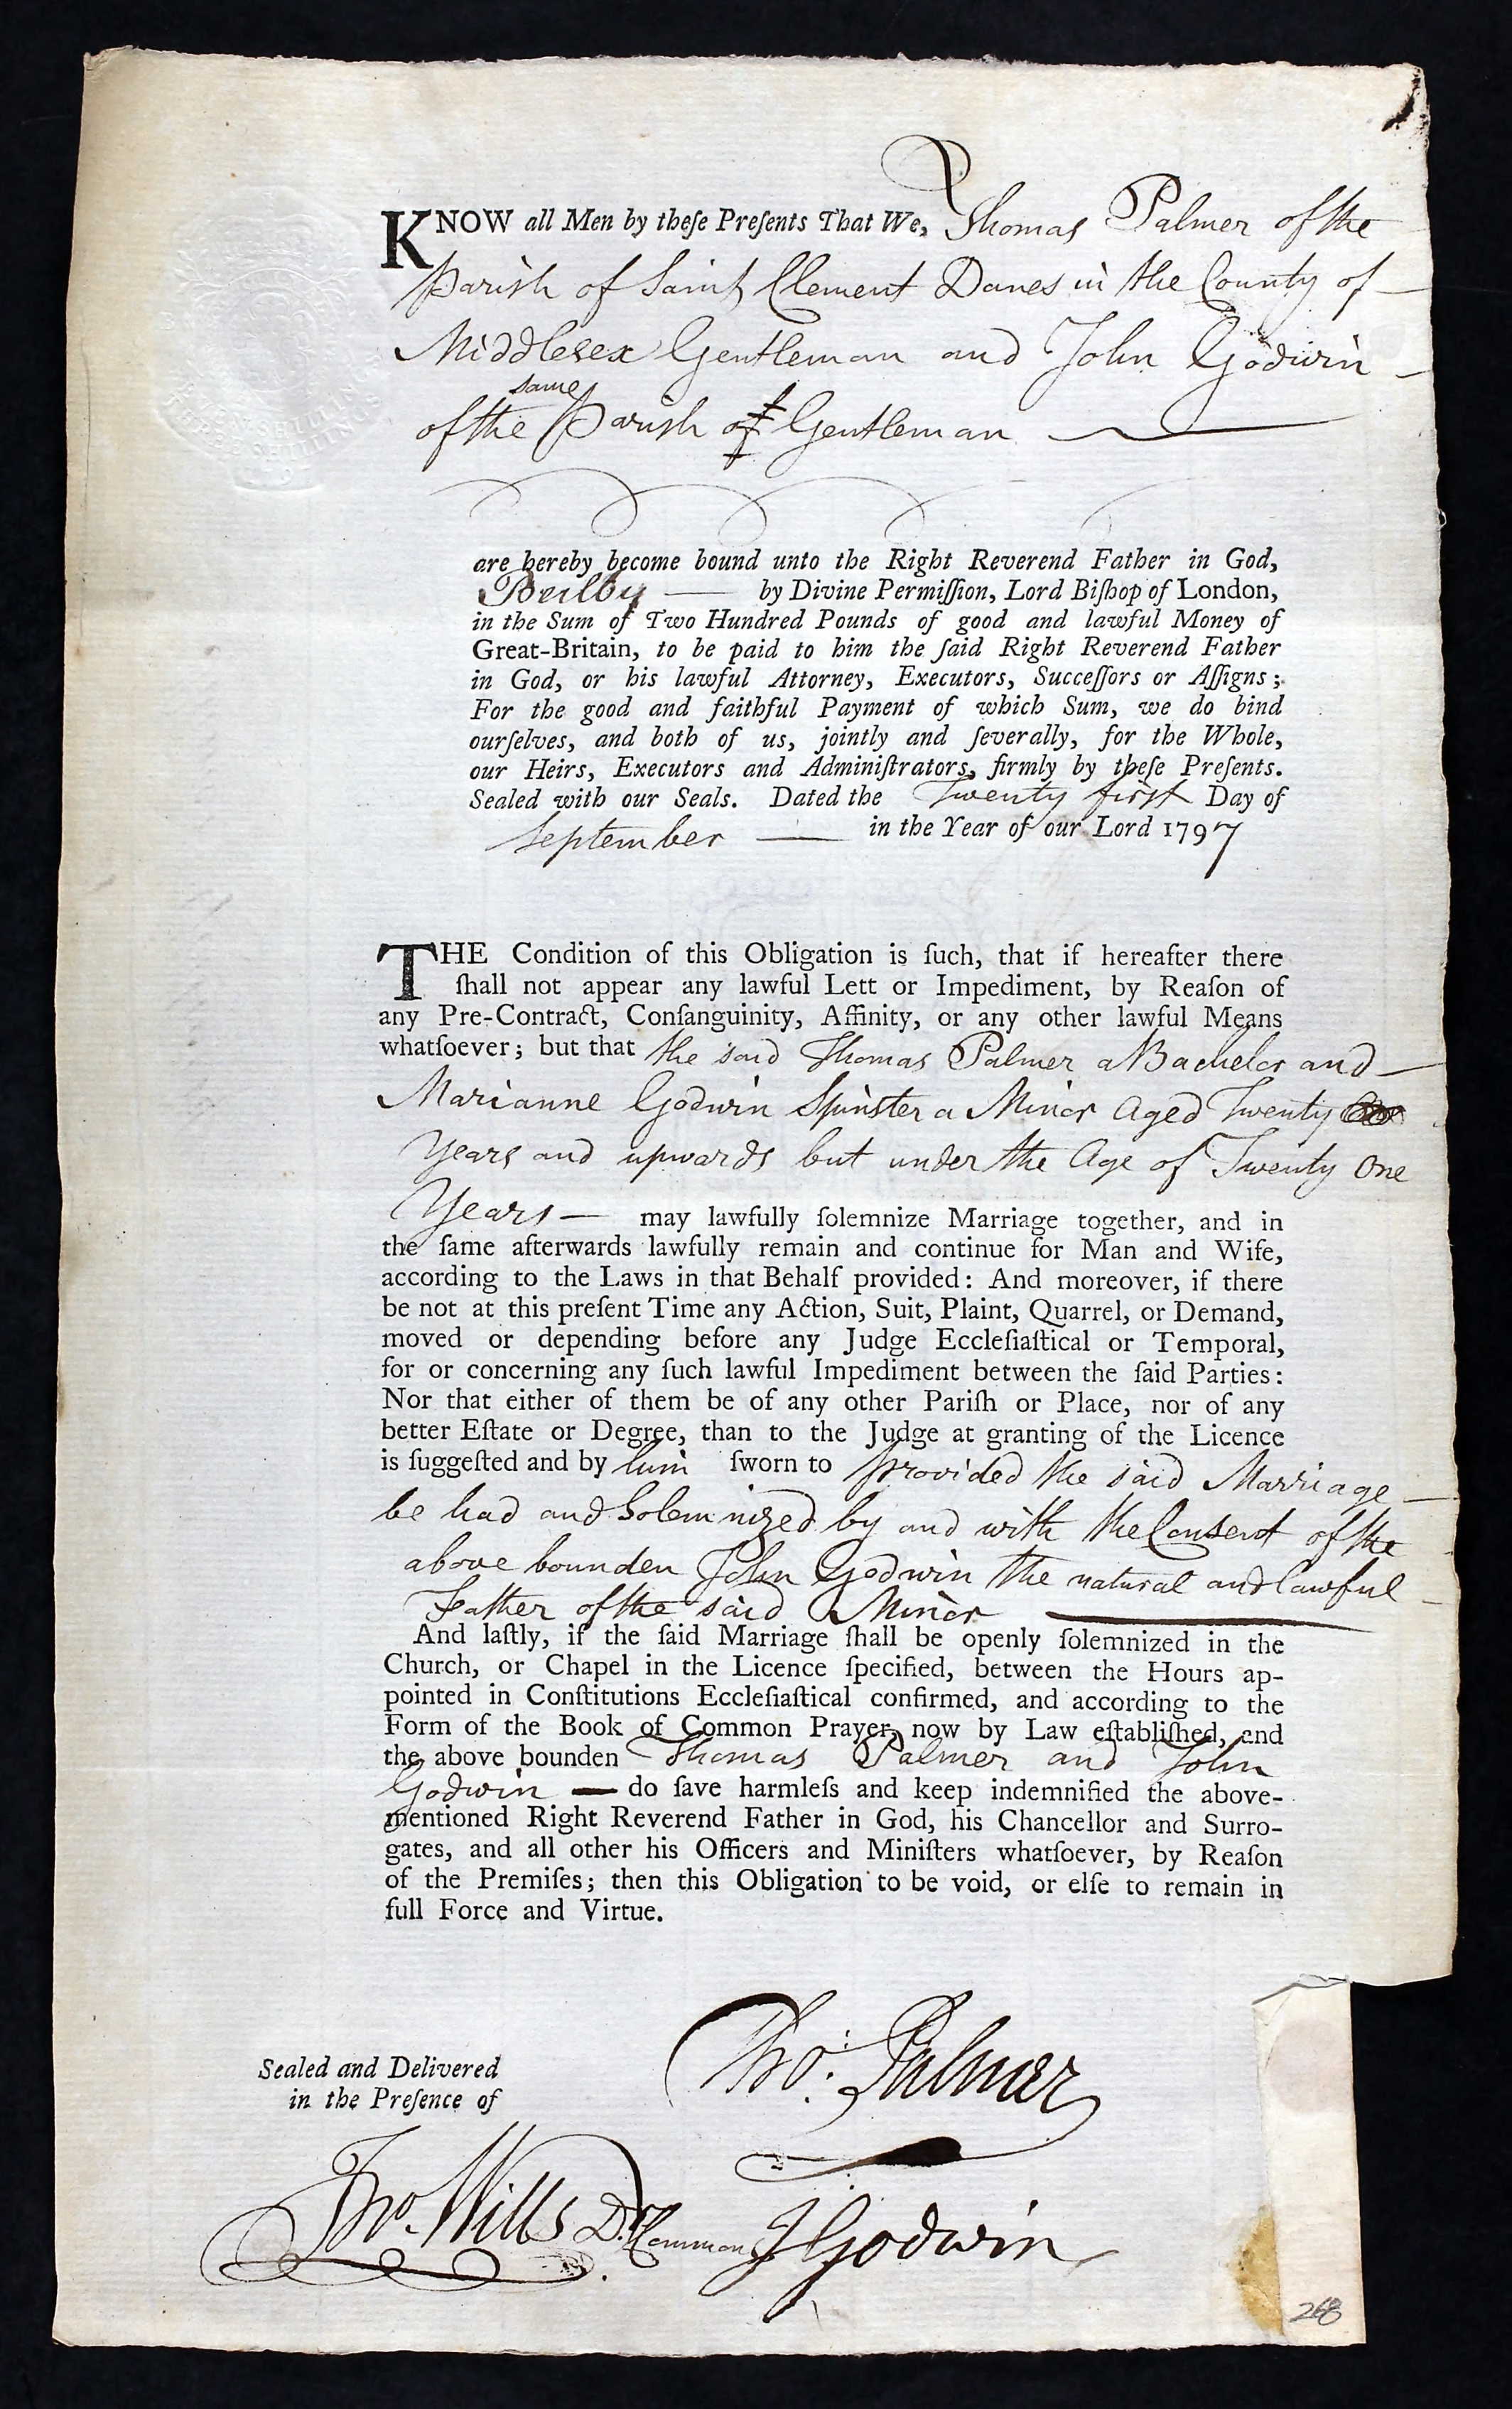 KNOW all Men by theſe Preſents That We, Thomas Palmer of the
Parish of Saint Clement Danes in the County of —
Middlesex Gentleman and John Godwin —
same
of the Parish of Gentleman
are hereby become bound unto the Right Reverend Father in God,
Beilby — by Divine Permiſſion, Lord Biſhop of London,
in the Sum of Two Hundred Pounds of good and lawful Money of
Great-Britain, to be paid to him the ſaid Right Reverend Father
in God, or his lawful Attorney, Executors, Succeſſors or Aſſigns;
For the good and faithful Payment of which Sum, we do bind
ourſelves, and both of us, jointly and ſeverally, for the Whole,
our Heirs, Executors and Adminiſtrators, firmly by theſe Preſents.
Sealed with our Seals. Dated the Twenty first Day of
September — in the Year of our Lord 1797
THE Condition of this Obligation is ſuch, that if hereafter there
ſhall not appear any lawful Lett or Impediment, by Reaſon of
any Pre-Contract, Conſanguinity, Affinity, or any other lawful Means
whatſoever; but that the said Thomas Palmer a Bachelor and —
Marianne Godwin Spinster a Minor Aged Twenty
Years and upwards but under the Age of Twenty One
Years — may lawfully ſolemnize Marriage together, and in
the ſame afterwards lawfully remain and continue for Man and Wife,
according to the Laws in that Behalf provided: And moreover, if there
be not at this preſent Time any Action, Suit, Plaint, Quarrel, or Demand,
moved or depending before any Judge Eccleſiaſtical or Temporal,
for or concerning any ſuch lawful Impediment between the ſaid Parties:
Nor that either of them be of any other Pariſh or Place, nor of any
better Eſtate or Degree, than to the Judge at granting of the Licence
is ſuggeſted and by him ſworn to provided the said Marriage —
be had and Solemnized by and with the Consent of the
above bounden John Godwin the natural and lawful —
Father of the said Minor —
And laſtly, if the ſaid Marriage ſhall be openly ſolemnized in the
Church, or Chapel in the Licence ſpecified, between the Hours ap-
pointed in Conſtitutions Eccleſiaſtical confirmed, and according to the
Form of the Book of Common Prayer, now by Law eſtabliſhed, and
the above bounden Thomas Palmer and John
Godwin — do ſave harmleſs and keep indemnified the above-
mentioned Right Reverend Father in God, his Chancellor and Surro-
gates, and all other his Officers and Miniſters whatſoever, by Reaſon
of the Premiſes; then this Obligation to be void, or elſe to remain in
full Force and Virtue.
Sealed and Delivered
in the Preſence of
Tho: Palmer
Tho. Wills Drs. Common
J Godwin
268